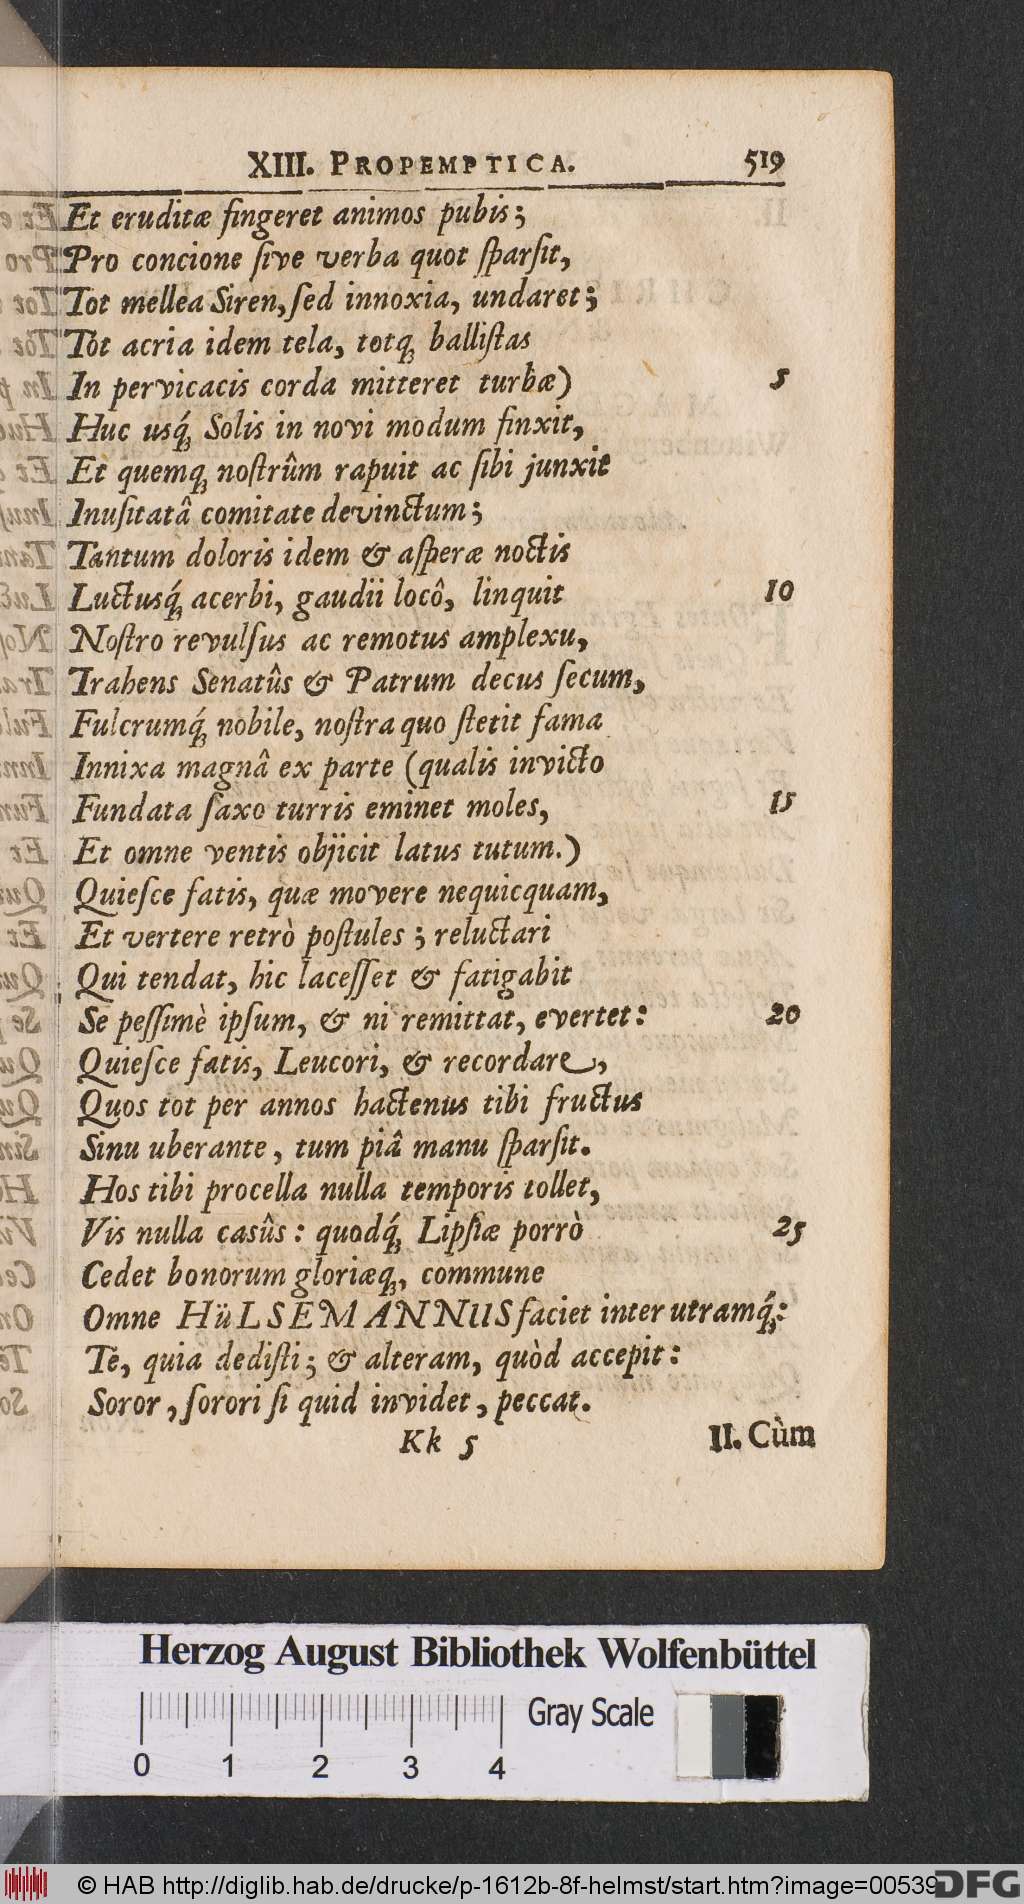 XIII. PROPEMPTICA. 519
Et eruditæ fingeret animos pubis;
Pro concione ſive verba quot ſparſit,
Tot mellea Siren, ſed innoxia, undaret;
Tot acria idem tela, totq́ꝫ balliſtas
In pervicacis corda mitteret turbæ) 5
Huc usq́ꝫ Solis in novi modum finxit,
Et quemqꝫ noſtrûm rapuit ac ſibi junxit
Inuſitatâ comitate devinctum;
Tantum doloris idem & aſperæ noctis
Luctusq́ꝫ acerbi, gaudii locô, linquit 10
Noſtro revulſus ac remotus amplexu,
Trahens Senatûs & Patrum decus ſecum,
Fulcrumq́ꝫ nobile, noſtra quo ſtetit fama
Innixa magnâ ex parte (qualis invicto
Fundata ſaxo turris eminet moles, 15
Et omne ventis objicit latus tutum.)
Quieſce fatis, quæ movere nequicquam,
Et vertere retrò poſtules; reluctari
Qui tendat, hic laceſſet & fatigabit
Se peſſimè ipſum, & ni remittat, evertet: 20
Quieſce fatis, Leucori, & recordare,
Quos tot per annos hactenus tibi fructus
Sinu uberante, tum piâ manu ſparſit.
Hos tibi procella nulla temporis tollet,
Vis nulla casûs: quodq́ꝫ Lipſiæ porrò 25
Cedet bonorum gloriæqꝫ, commune
Omne HüLSEMANNUS faciet inter utramq́ꝫ:
Te, quia dediſti; & alteram, quòd accepit:
Soror, ſorori ſi quid invidet, peccat.
Kk 5 II. Cùm
Herzog August Bibliothek Wolfenbüttel
Gray Scale
0 1 2 3 4
© HAB http://diglib.hab.de/drucke/p-1612b-8f-helmst/start.htm?image=00539
DFG